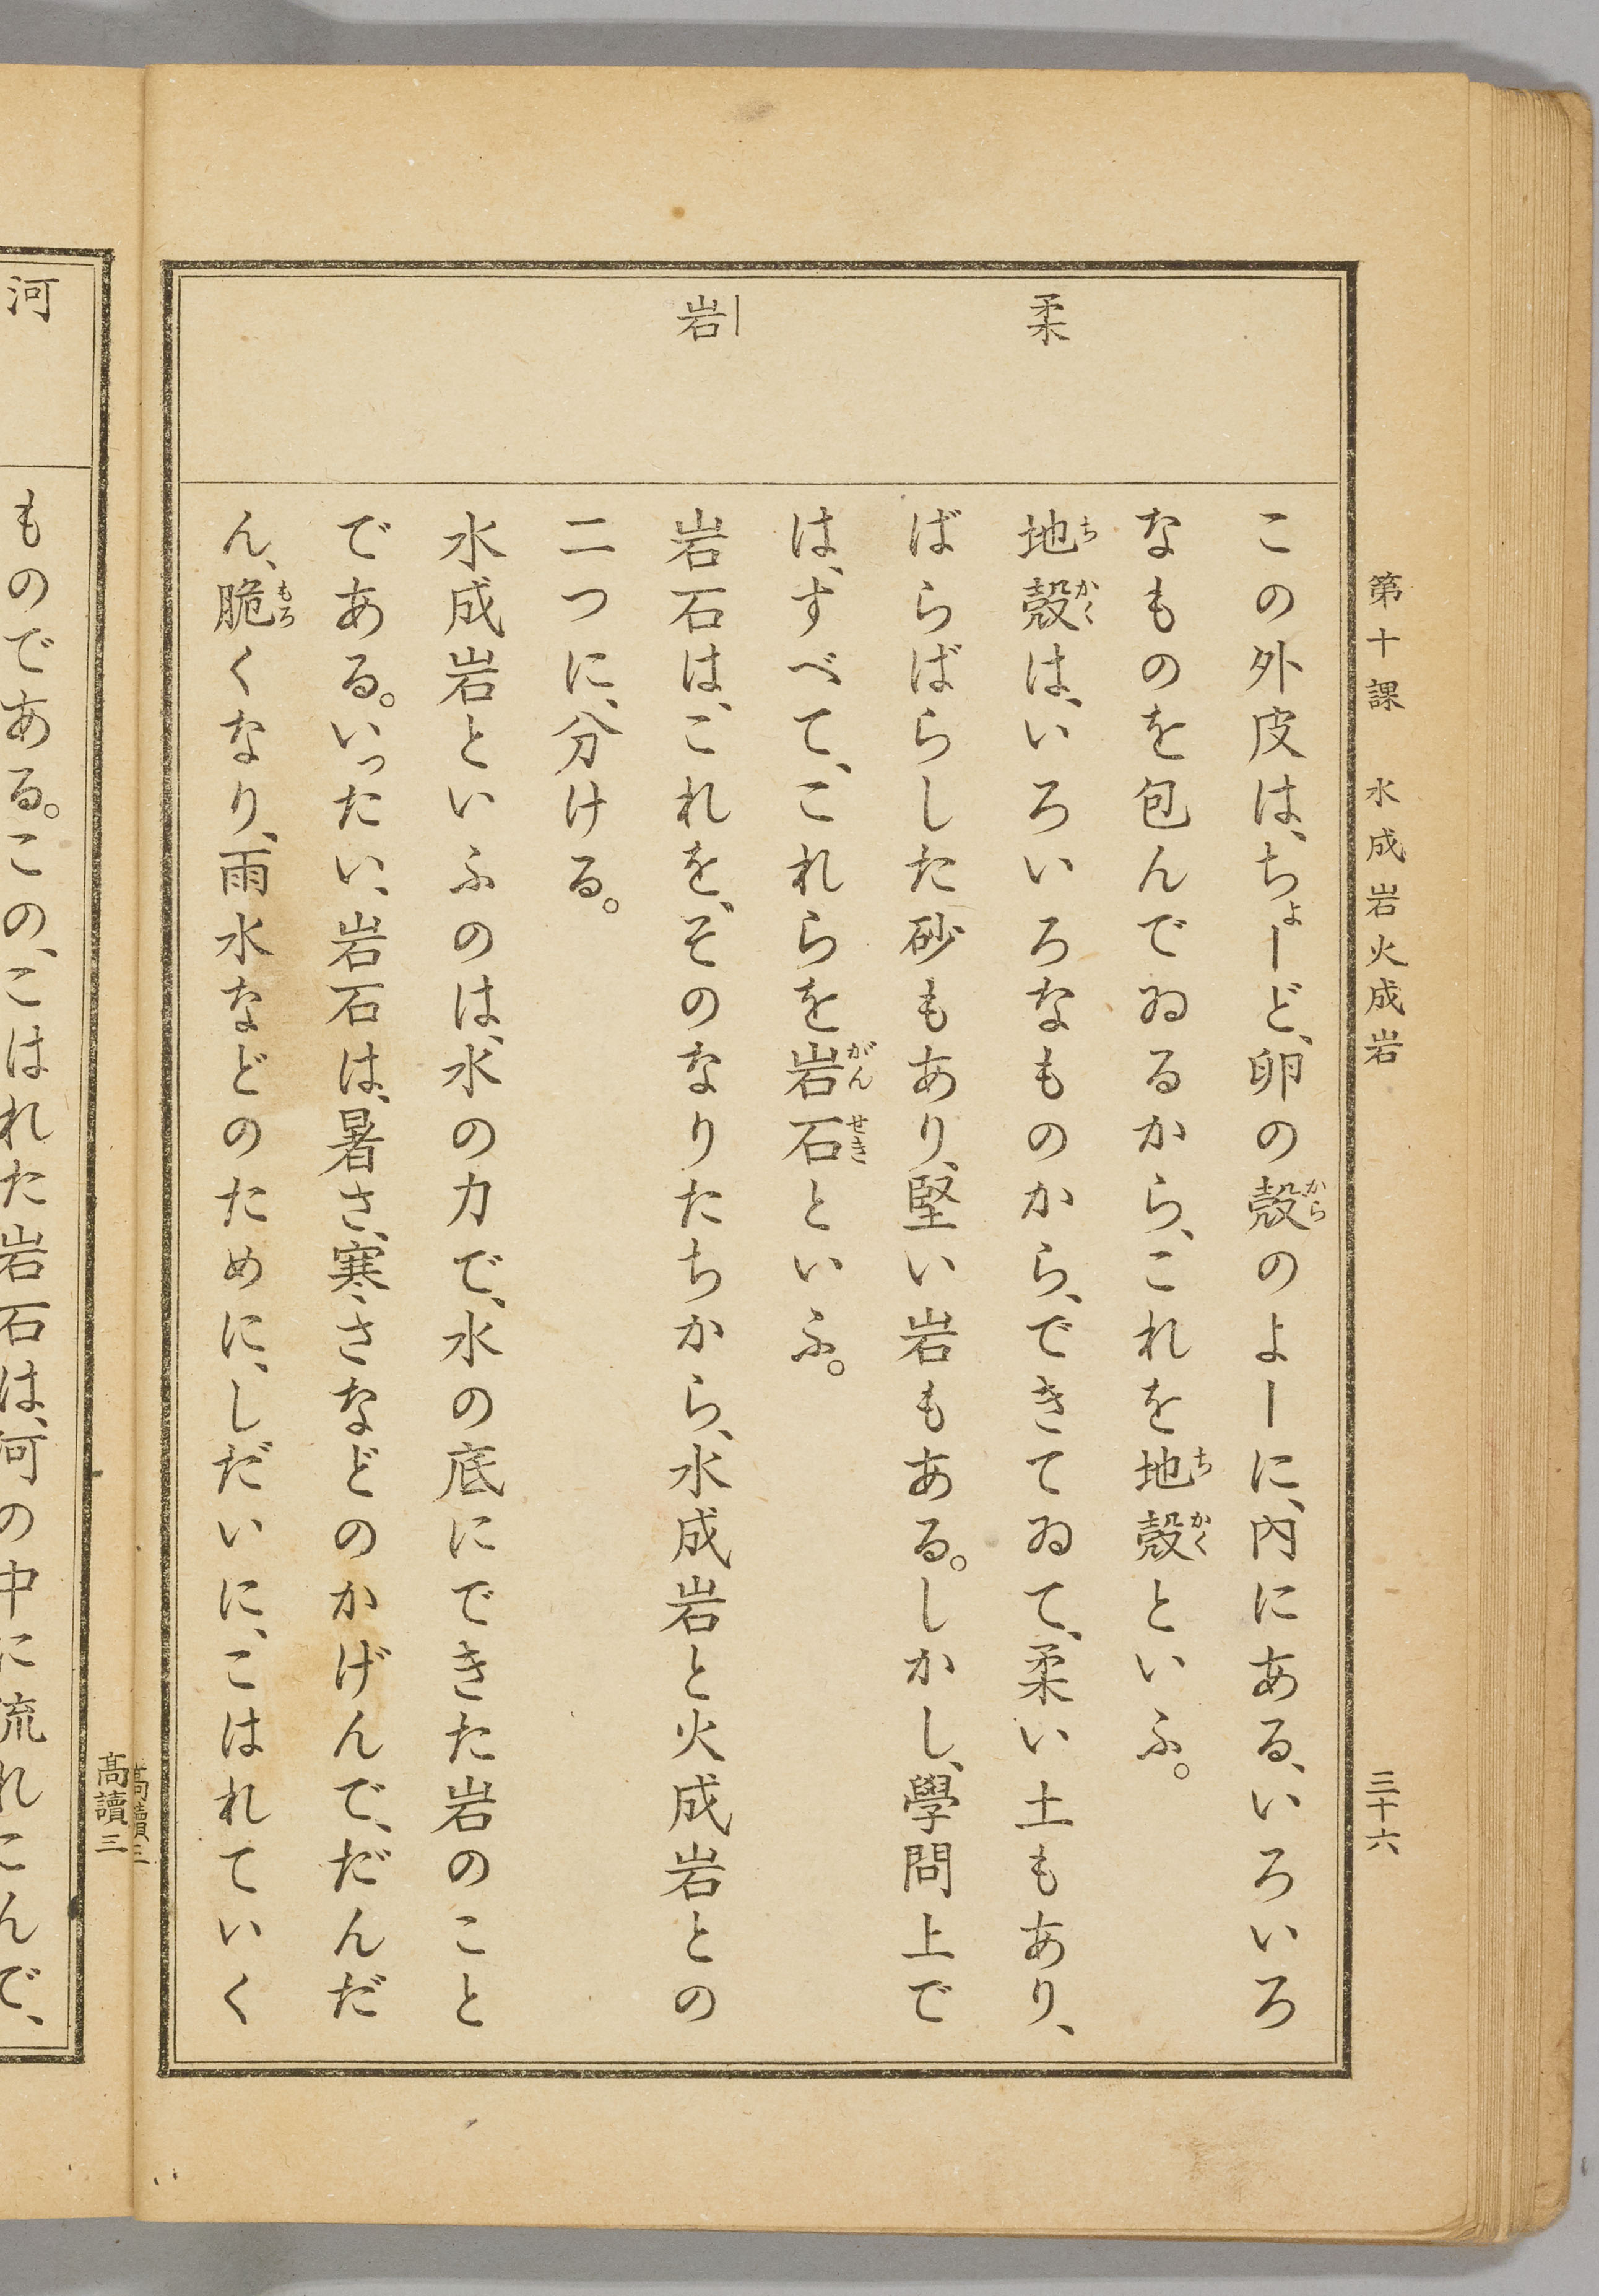 第十課 水成岩火成岩 三十六
柔
岩
この外皮は、ちょーど、卵の殼のよーに、内にある、いろいろ
なものを包んでゐるから、これを地殼といふ。
地殼は、いろいろなものから、できてゐて、柔い土もあり、
ばらばらした砂もあり、堅い岩もある。しかし、學問上で
は、すべて、これらを岩石といふ。
岩石は、これを、そのなりたちから、水成岩と火成岩との
二つに、分ける。
水成岩といふのは、水の力で、水の底にできた岩のこと
である。いったい、岩石は、暑さ、寒さなどのかげんで、だんだ
ん、脆くなり、雨水などのために、しだいに、こはれていく
高讀三
河
ものである。この、こはれた岩石は、河の中に流れこんで、
高讀三